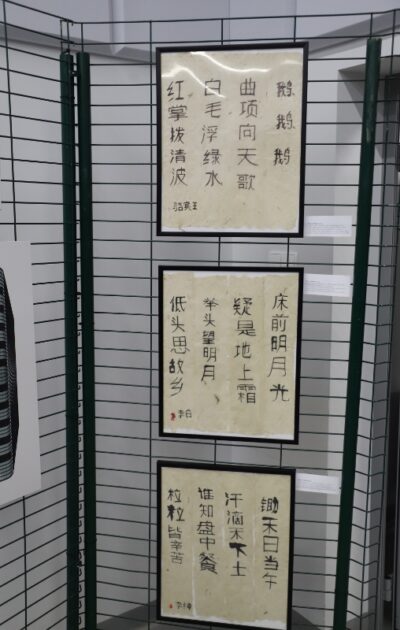 鹅鹅鹅
曲项向天歌
白毛浮绿水
红掌拨清波
骆宾王
床前明月光
疑是地上霜
举头望明月
低头思故乡
李白
锄禾日当午
汗滴禾下土
谁知盘中餐
粒粒皆辛苦
李绅